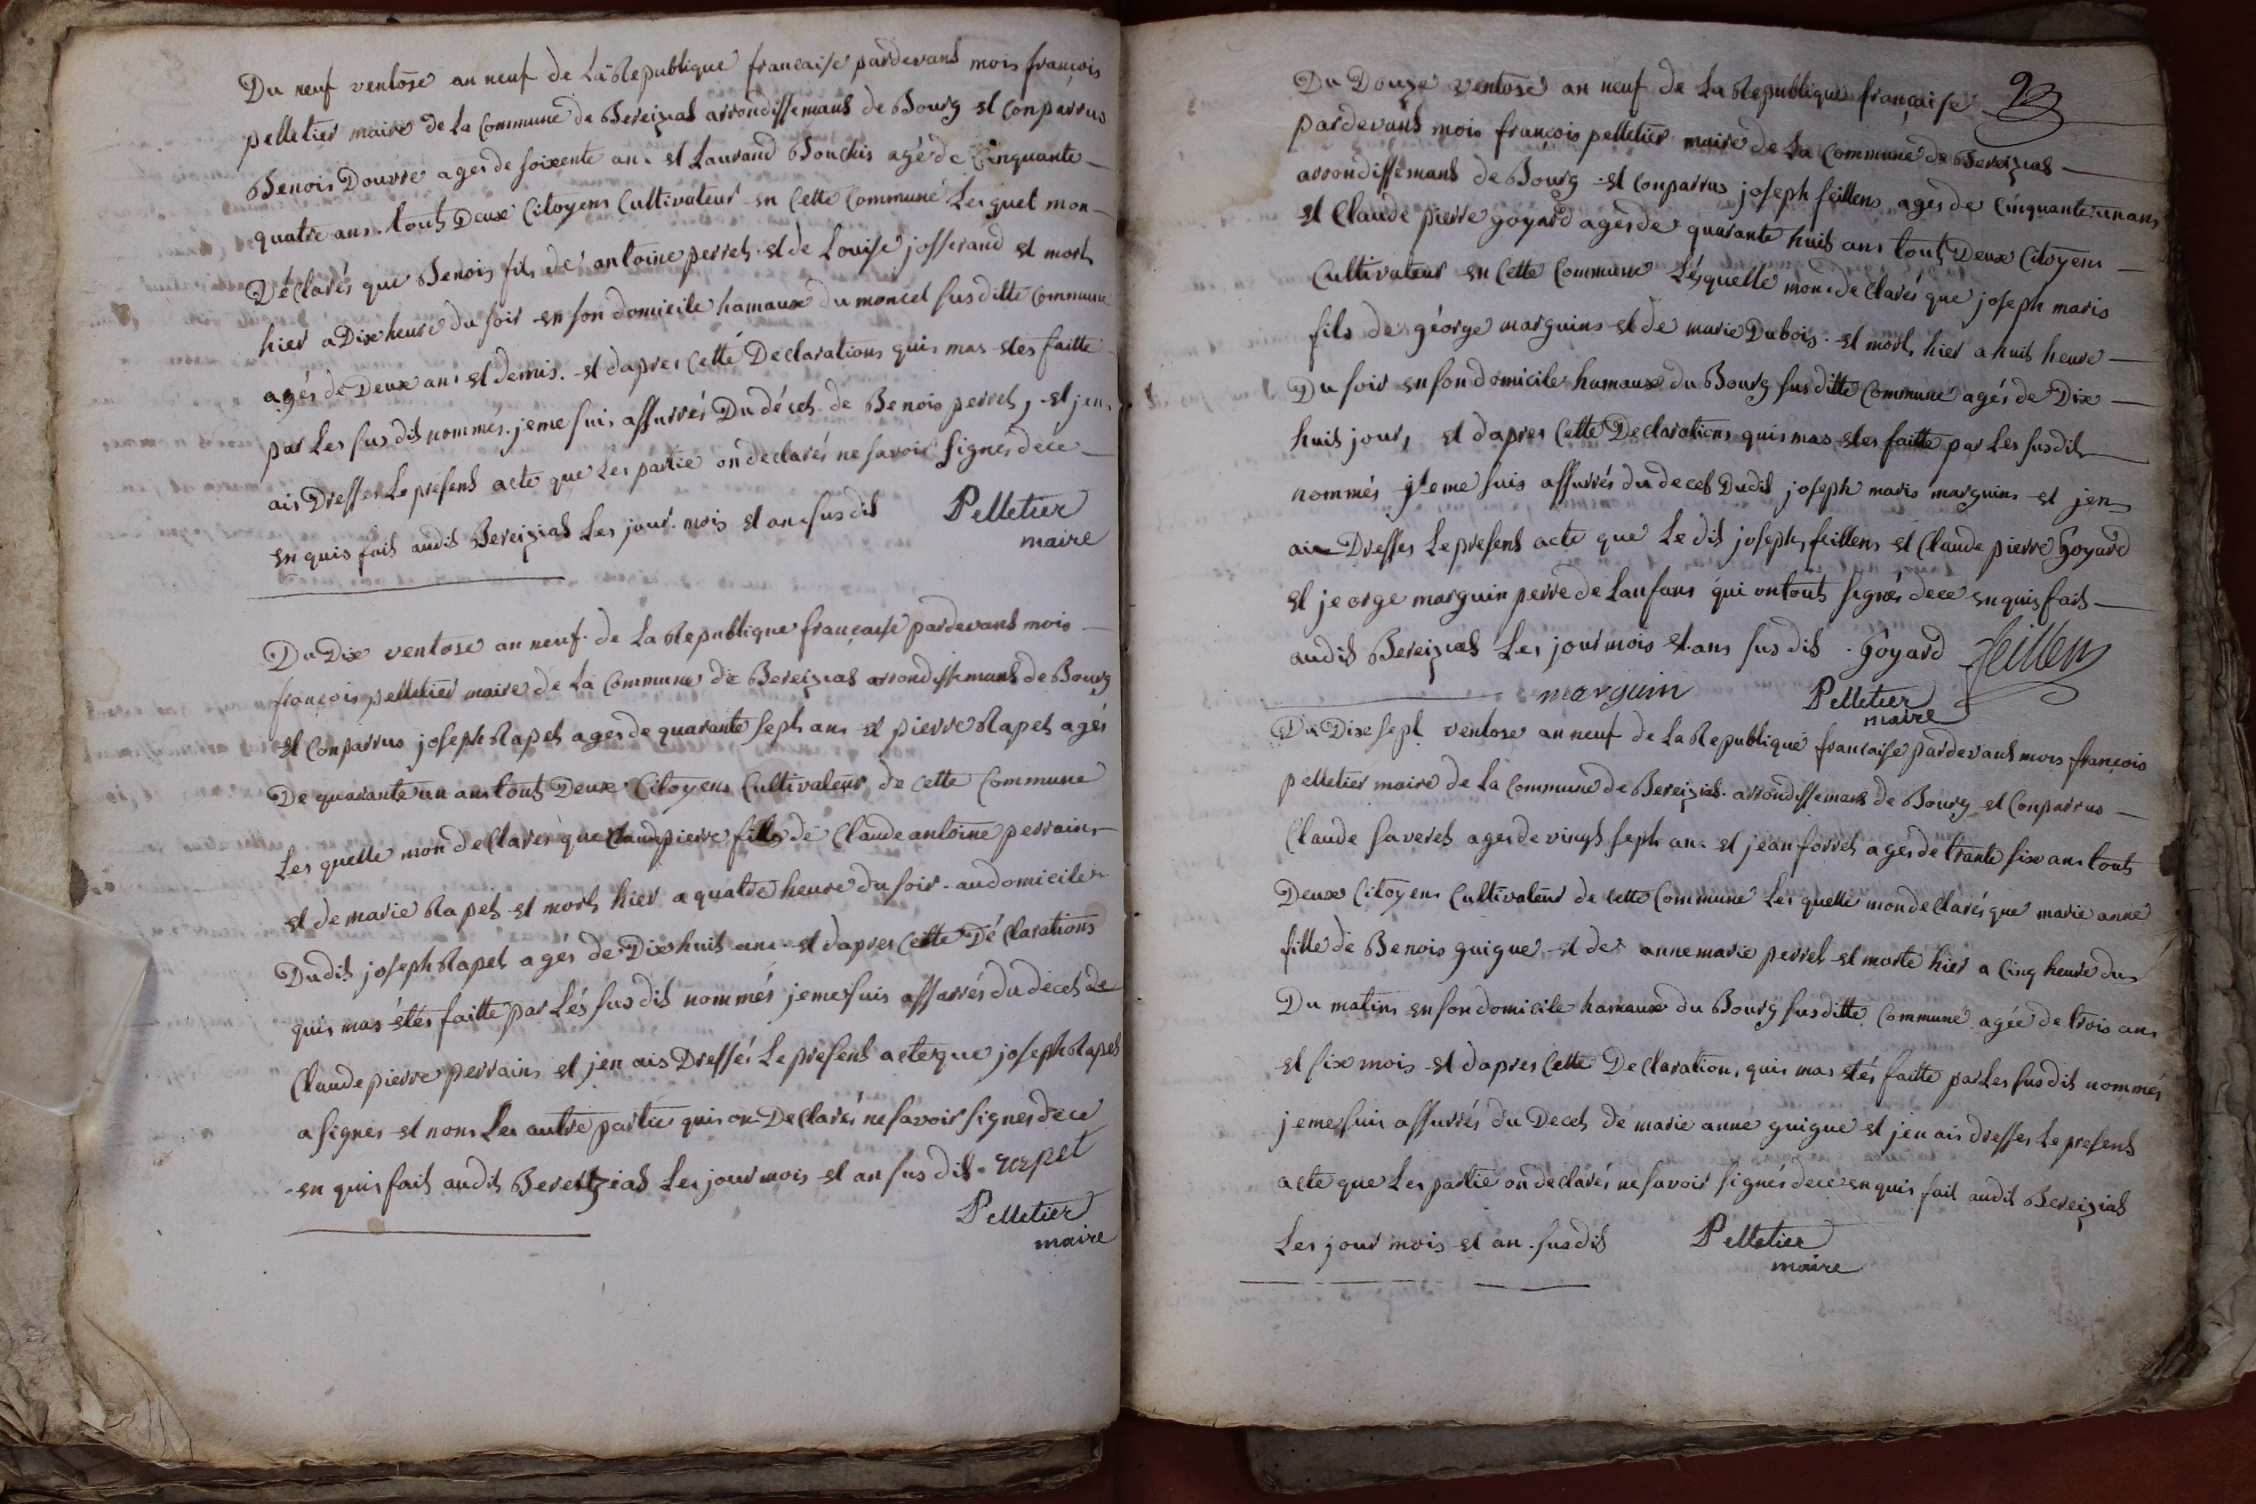 Du neuf ventose an neuf de La Republique francaise pardevand mois francois
pelletier maire de La Commune de Bereizias arrondissemant de Bourg et Conparrus
Benois Douvre ages de soixente an. et Laurand Bouchis agé de Cinquante
quatre ans. touts Deux Citoyens Cultivateur en Cette Commune Les quel mon
Déclarés que Benois fils de antoine perret et de Louise josserand et mort
hier a Dix heure du soir en son domicile hamaux du moncel susditte Commune
agés de Deux ans et demis. et dapres Cette Declarations quis mas etes faitte
par Les susdit nommés. jeme suis assurrés Du décet de Benois perret, et jen
ais Dresses Le present acte que Les partie on declarés ne savoir Signés dece
en quis fait audit Bereizias Les jour mois et an susdit Pelletier
maire
Du Dix ventose an neuf de La Republique française pardevant mois
françois pelletier maire de La Commune de Bereizias arrondissemant de Bourg
et Conparrus joseph Rapet ages de quarante sept ans et pierre Rapet agés
De quarante un ans touts Deux Citoyens Cultivateur de cette Commune
Les quelle mon declarés que Claudpierre fils de Claude antoine perrain
et de marie Rapet et mort hier a quatre heure du soir au domicile
Dudit joseph Rapet agés de Dix huit ans et dapres Cette Déclarations
quis mas étés faitte par Lés susdit nommés jeme suis assurrés du decet de
Claude pierre perrains et jen ais Dressés Le present acte que joseph Rapet
a signes et nons Les autre partie quis on Declarés ne savoir signes dece
en quis fait audit Bereizias Les jour mois et an susdit. rapet
Pelletier
maire
Du Douze ventose an neuf de La Republique française
pardevant mois françois pelletier maire de La Commune de Bereizias
arrondissemant de Bourg et Conparrus joseph feillens ages de Cinquante un ans
et Claude pierre goyard agés de quarante huit ans touts Deux Citoyens
Cultivateur en Cette Commune Lésquelle mon declarés que joseph maris
fils de géorge marguins et de marie Dubois et mort hier a huit heure
Du soir en son domicile hamaux du Bourg susditte Commune agés de Dix
huit jour, et dapres Cette Declarations quis mas etes faitte par Les susdit
nommés je me suis assurrés du decet Dudit joseph maris marguins et jen
ais Dresses Le present acte que Le dit joseph feillens et Claude pierre Goyard
et jeorge marguin perre de Lanfans qui on touts signés dece en quis fait
audit Bereizias Les jour mois et ans susdit. Goyard feillens
marguin Pelletier
maire
Du Dix sept ventose an neuf de La Republique francaise pardevant mois françois
pelletier maire de La Commune de Bereizias arrondissemant de Bourg et Conparrus
Claude saveret ages de vingt sept an. et jean forret ages de trante six ans touts
Deux Citoyens Cultivateur de Cette Commune Les quelle mon declarés que marie anne
fille de Benois guigue et de anne marie perret et morte hier a Cinq heure du
Du matins en son domicile hamaux du Bourg susditte Commune agée de trois ans
et six mois et dapres Cette Declarations quis mas étés faitte par Les susdit nommés
jeme suis assurrés du Decet de marie anne guigue et jen ais dresses Le present
acte que Les partie on declarés ne savoir signés dece en quis fait audit Bereizias
Les jour mois et an susdit Pelletier
maire